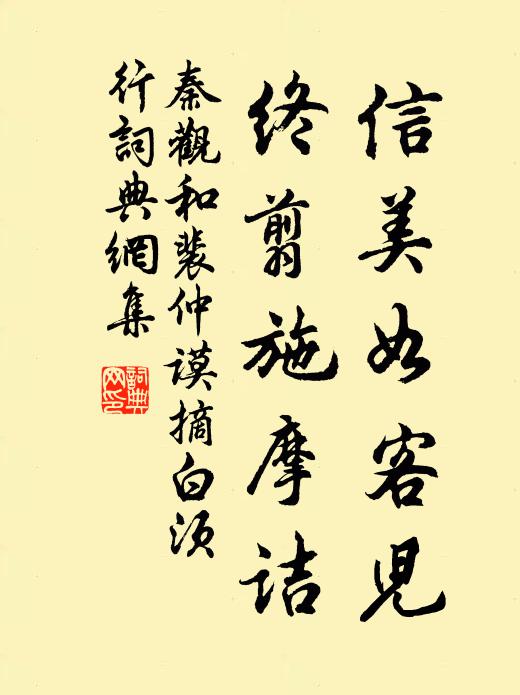 信美如客児
終剪施摩詰
秦觀和裴仲謨摘白須
行詞典網集
詞典網印